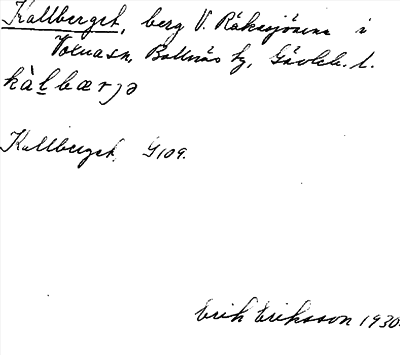 Kallberget, berg V. Råksjöarna i
Voxnasn, Bollnäs tg, Gävleb. l.
kàl̲bærjə
Kallberget, G109.
Erik Eriksson 1930.